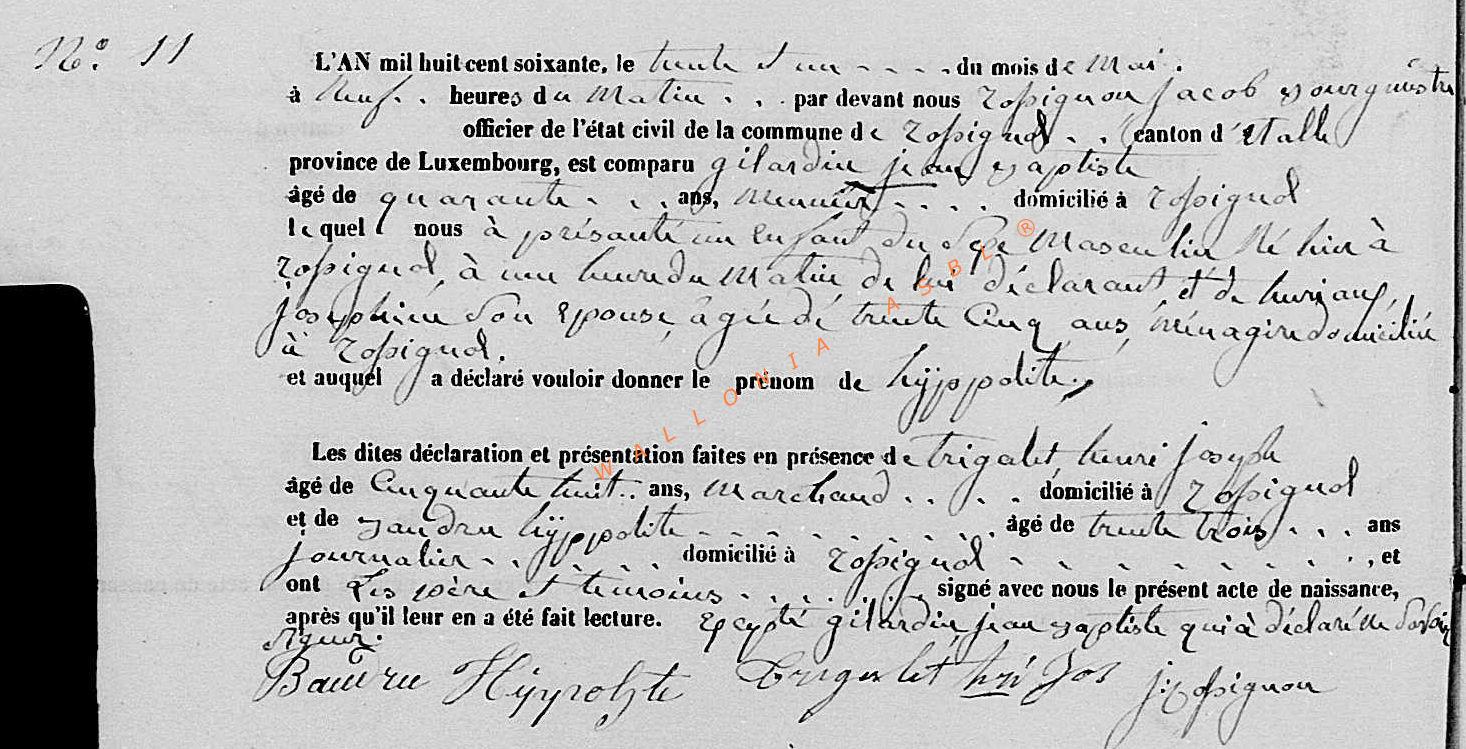 No. 11
L'AN mil huit cent soixante, le trente et un du mois de Mai.
à Neuf. heures du Matin. par devant nous Rossignon jacob Bourguestre
officier de l'état civil de la commune de Rossignol canton d'Etalle
province de Luxembourg, est comparu gilardin jean Baptiste
âgé de quarante ans, domicilié à Rossignol
lequel nous à présenté un Enfant du Sexe Masculin Né hier à
Rossignol, à une heure du Matin de lui déclarant et de
josephine Son Epouse, âgée de trente Cinq ans, ménagère domiciliée
à Rossignol.
et auquel a déclaré vouloir donner le prénom de hÿppolite,
Les dites déclaration et présentation faites en présence de trigalet, henri joseph
âgé de Cinquante huit ans, Marchand domicilié à Rossignol
et de Baudru hÿppolite âgé de trente trois ans
journalier domicilié à Rossignol, et
ont Les père et temoins signé avec nous le présent acte de naissance,
après qu'il leur en a été fait lecture. Excepté gilardin jean Baptiste qui à déclaré ne Savoir
Signer.
Baudru Hÿppolyte Trigalet hri Jos j: Rossignon
WALLONIA ASBL ®